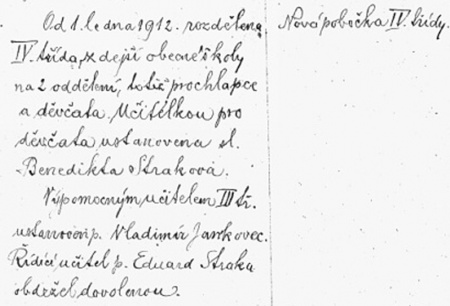 Od 1. ledna 1912. rozdělena
IV. třída, zdejší obecné školy
na 2 oddělení, totiž pro chlapce
a děvčata. Učitelkou pro
děvčata ustanovena sl.
Benedikta Straková.
Výpomocným, učitelem III tř.
ustanoven p. Vladimír Jankovec.
Řídící, učitel p. Eduard Straka
obdržel, dovolenou.
Nová pobočka IV. třídy.